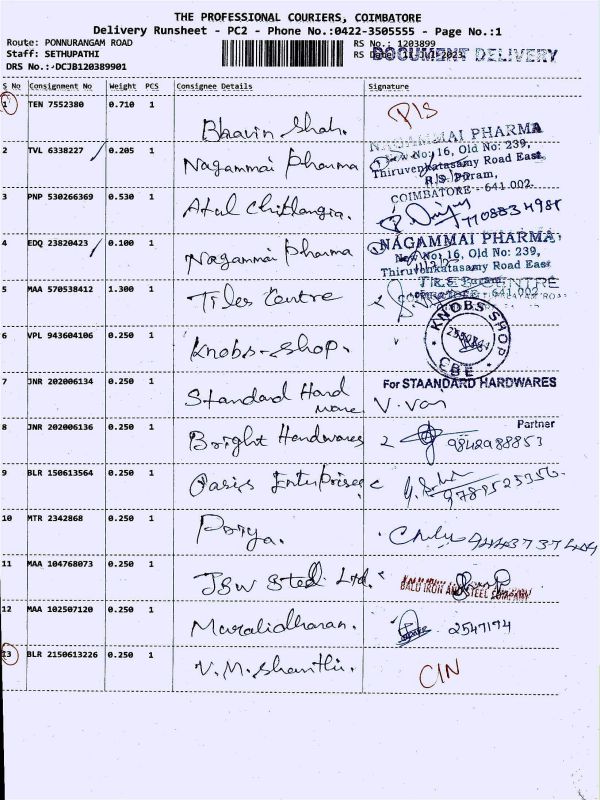 THE PROFESSIONAL COURIERS, COIMBATORE
Delivery Runsheet - PC2 - Phone No.:0422-3505555 - Page No.:1
Route: PONNURANGAM ROAD
RS No.: 1203899
Staff: SETHUPATHI
RS
DOCUMENT DELIVERY
DRS No.:-DCJB120389901
S No Consignment No Weight PCS Consignee Details Signature
1 TEN 7552380 0.710 1 Bhavin Shah. P/S
2 TVL 6338227 0.205 1 Nagammai Pharma
NAGAMMAI PHARMA
New No: 16, Old No: 239,
Thiruvenkatasamy Road East,
R.S. Puram,
COIMBATORE - 641 002.
3 PNP 530266369 0.530 1 Atul Chitlangia.
4 EDQ 23820423 0.100 1 Nagammai Pharma
NAGAMMAI PHARMA,
New No: 16, Old No: 239,
Thiruvenkatasamy Road East
5 MAA 570538412 1.300 1 Tiles Centre
6 VPL 943604106 0.250 1 Knobs-Shop.
KNOBS SHOP
CBE
7 JNR 202006134 0.250 1 Standard Hard ware
For STAANDARD HARDWARES
Partner
8 JNR 202006136 0.250 1 Bright Hardwares 9842988853
9 BLR 150613564 0.250 1 Oasis Enterprises
10 MTR 2342868 0.250 1
11 MAA 104768073 0.250 1 JSW Steel Ltd.
BALU IRON AND STEEL COMPANY
12 MAA 102507120 0.250 1 Muralidharan. 2547194
13 BLR 2150613226 0.250 1 V.M. Shanthi. CIN